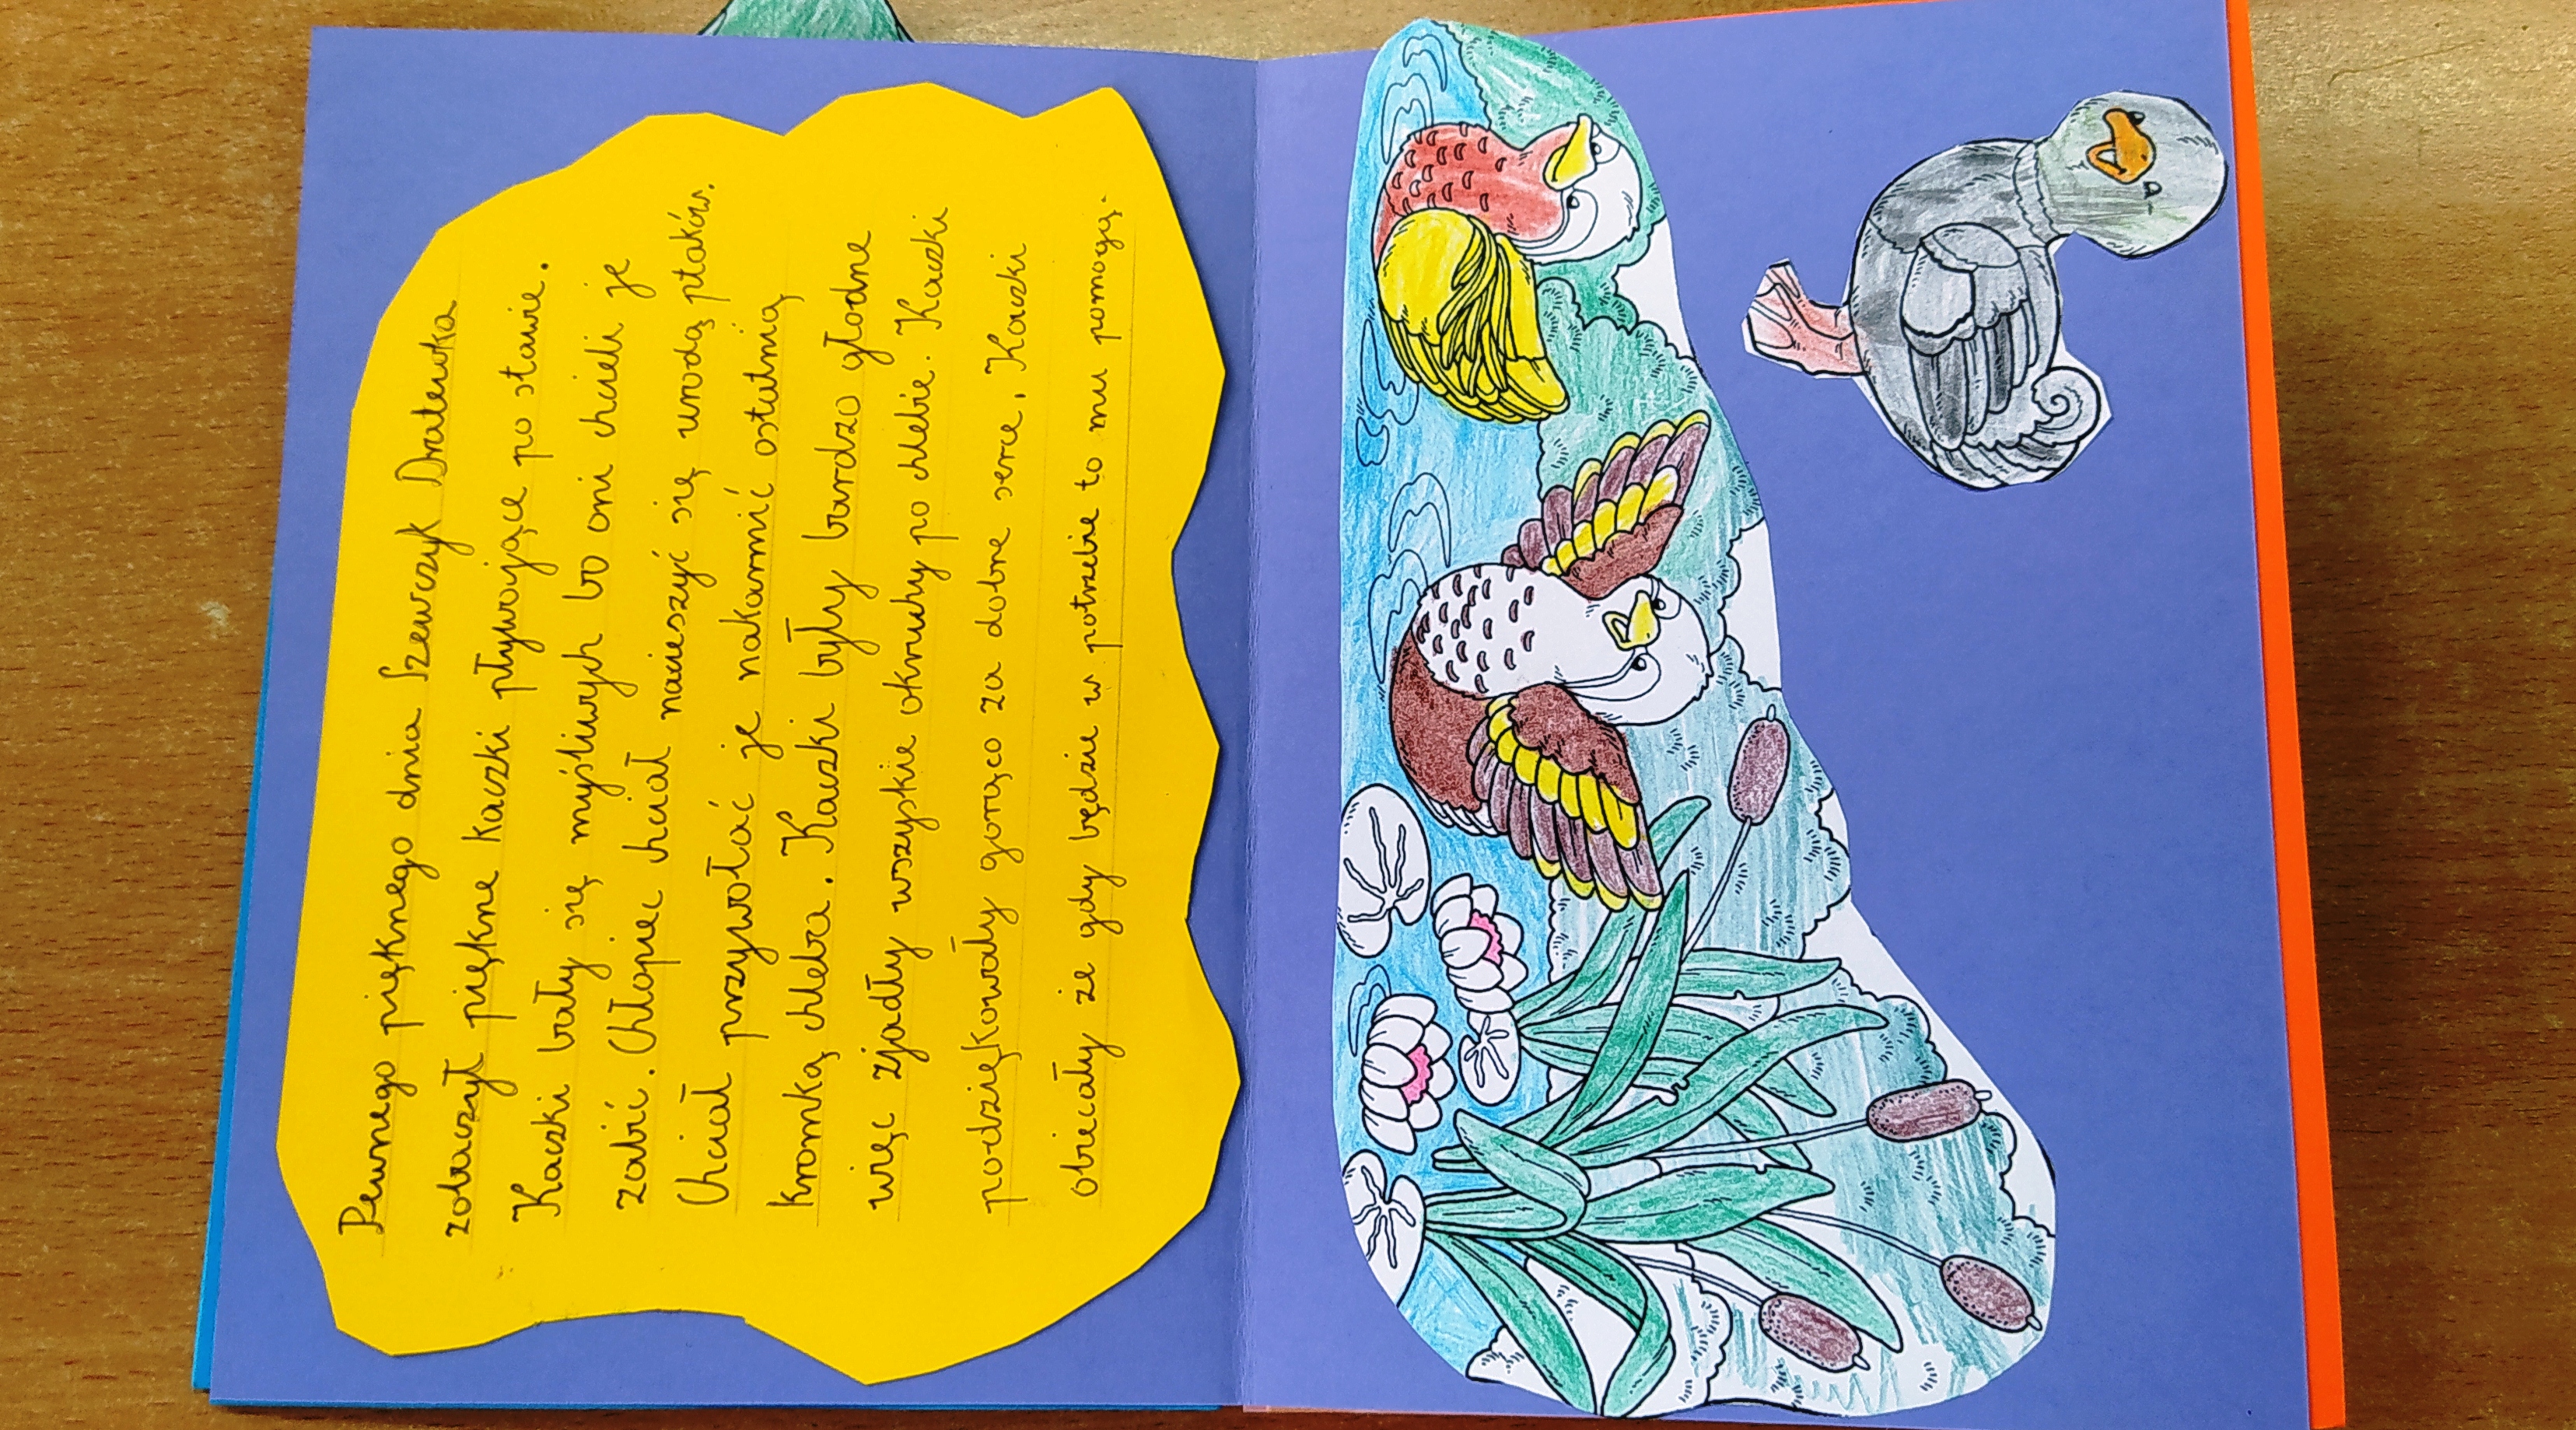 Pewnego pięknego dnia Szewczyk Dratewka
zobaczył piękne kaczki pływające po stawie.
Kaczki bały się myśliwych bo oni chcieli je
zabić. Chłopiec chciał nacieszyć się urodą ptaków.
Chciał przywołać je nakarmić ostatnią
kromką chleba. Kaczki były bardzo głodne
więc zjadły wszyskie okruchy po chlebie. Kaczki
podziękowały gorąco za dobre serce. Kaczki
obiecały że gdy będzie w potrzebie to mu pomogą.